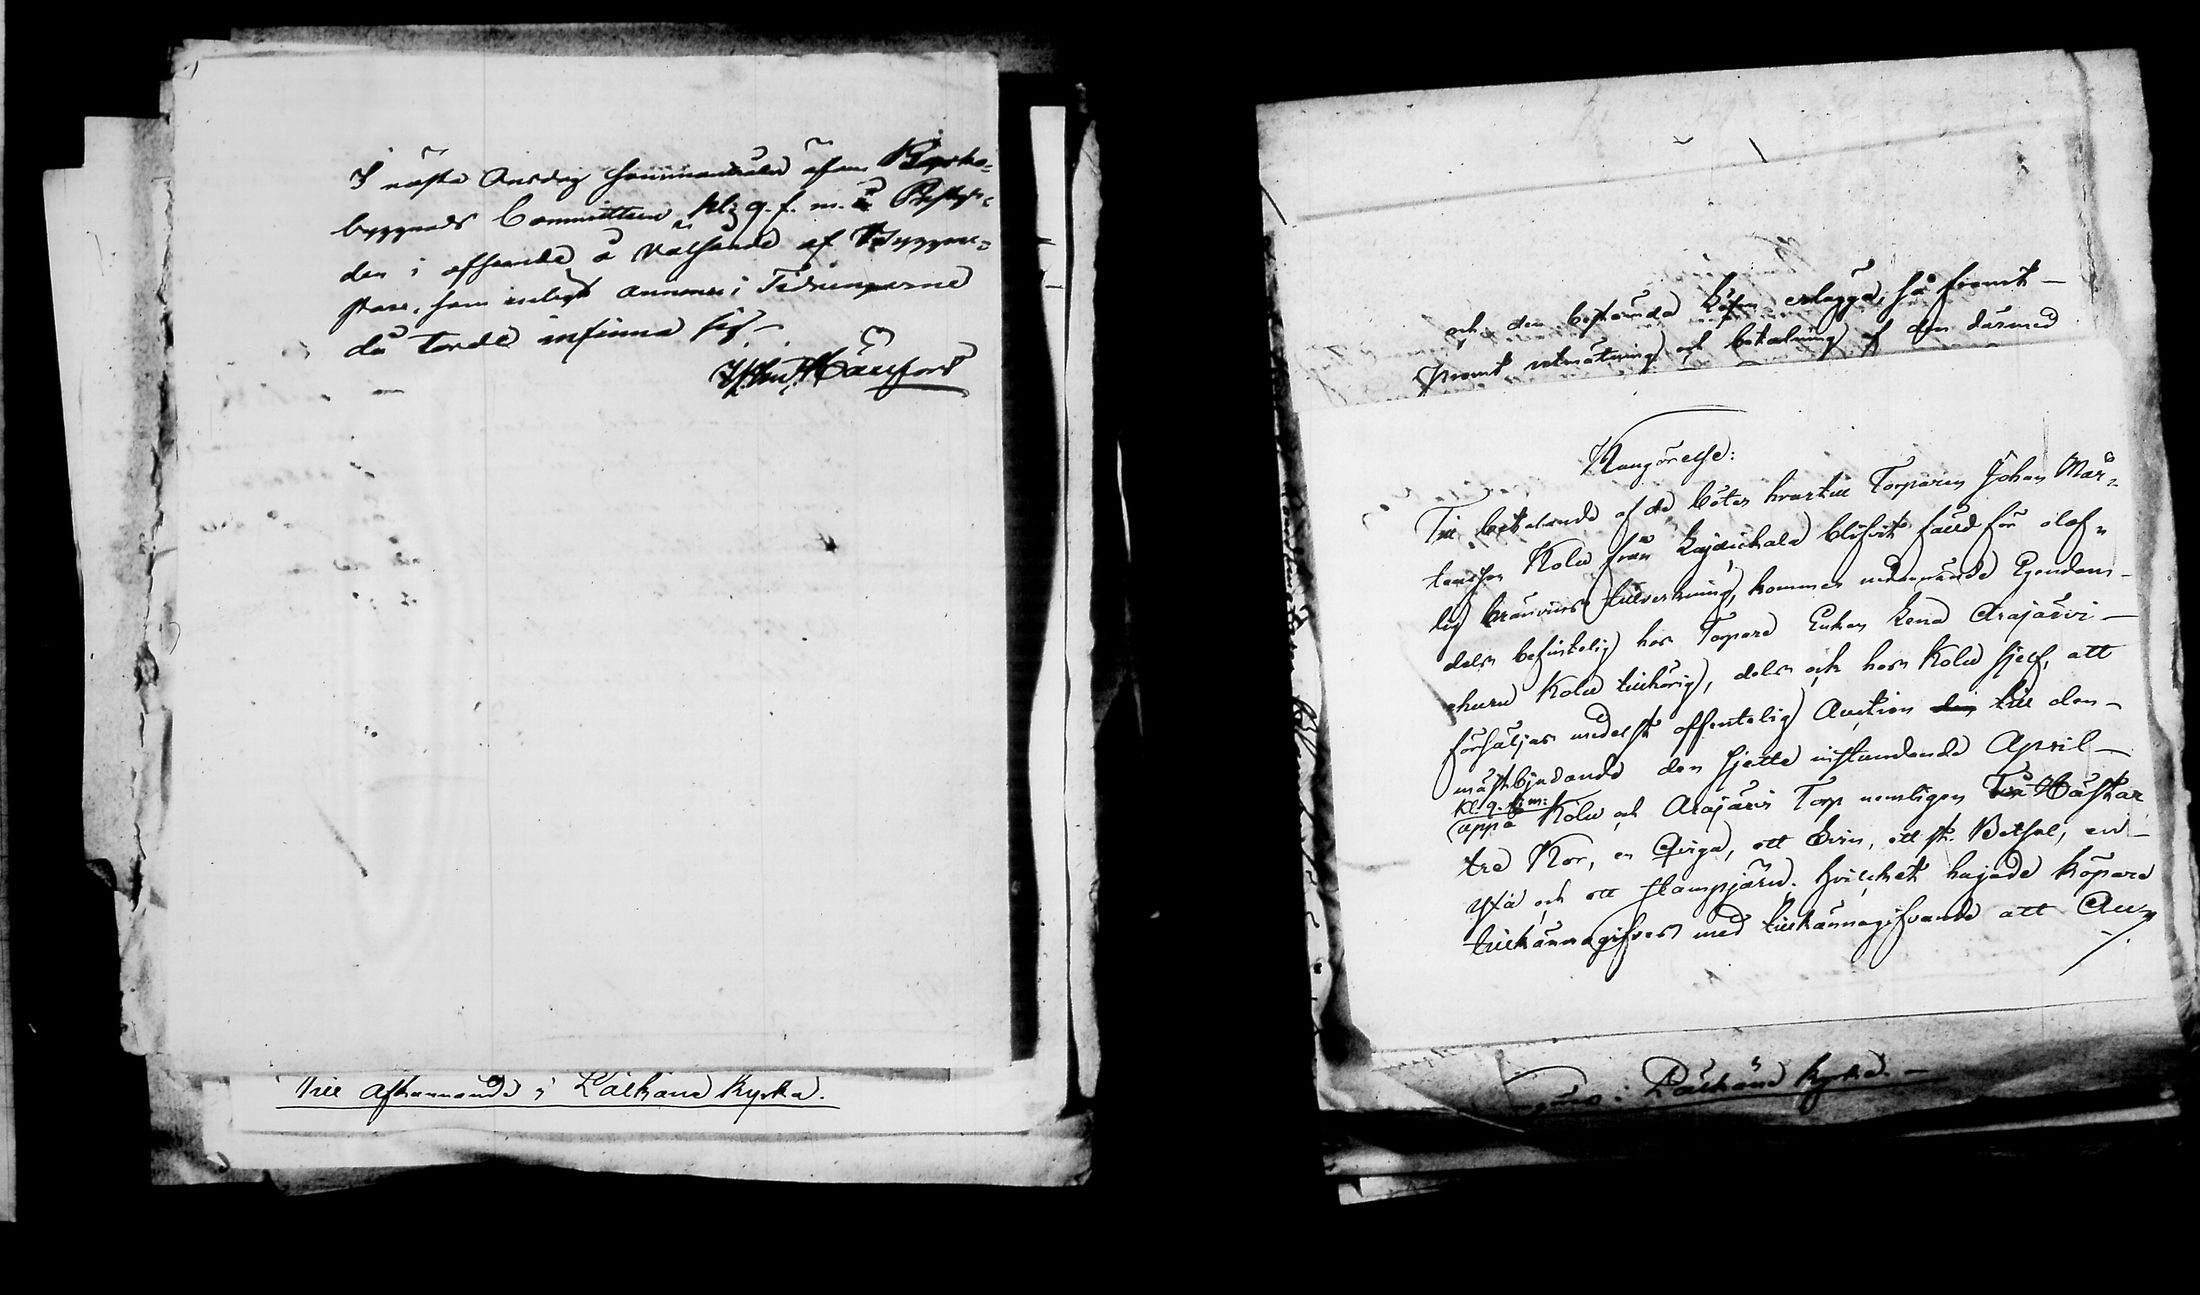 I nästa Onsdag sammanträder åfven Kyrko-
byggnads Committeen kl: 9. f. m. i Prestgår-
den i afseende å valsände af Byggmä-
stare, som enligt annons i Tidningarne
då torde infinna sig.
Till afkunnande i Pälkäne Kyrka.
och den bestämda Lösen erlägga, så framt
framt utmätning och betalning af den därmed
Kungörelse:
Till betalande af de böter hvartill Torparen Johan Mår-
tensson Kolu från Lajdickala blifvit fälld för olof-
lig bränvins tillverkning, kommer nedannämde Egendom
dels befintelig hos Torpare Enkan Lena Arajärvi
ehuru Kolu tillhörig, dels och hos Kolu sjelf, att
försäljas medelst offentelig Auction till den
mästbjudande den sjette nästundande April
kl. 9. f. m.
uppå Kolu och Arajärvi Torp nemligen Två Hästar
tre Kor, en Qviga, ett Svin, ett st. Betsel, en
yxa och ett stampjärn. hvilcket hugade köpare
tillkännagifves med tillkännagifvande att Auc-
i Pälkäne Kyrka.